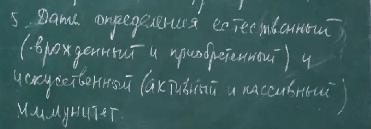 5. Дать определения естественный
(врожденный и приобретенный) и
искуственный (активный и пассивный)
иммунитет.